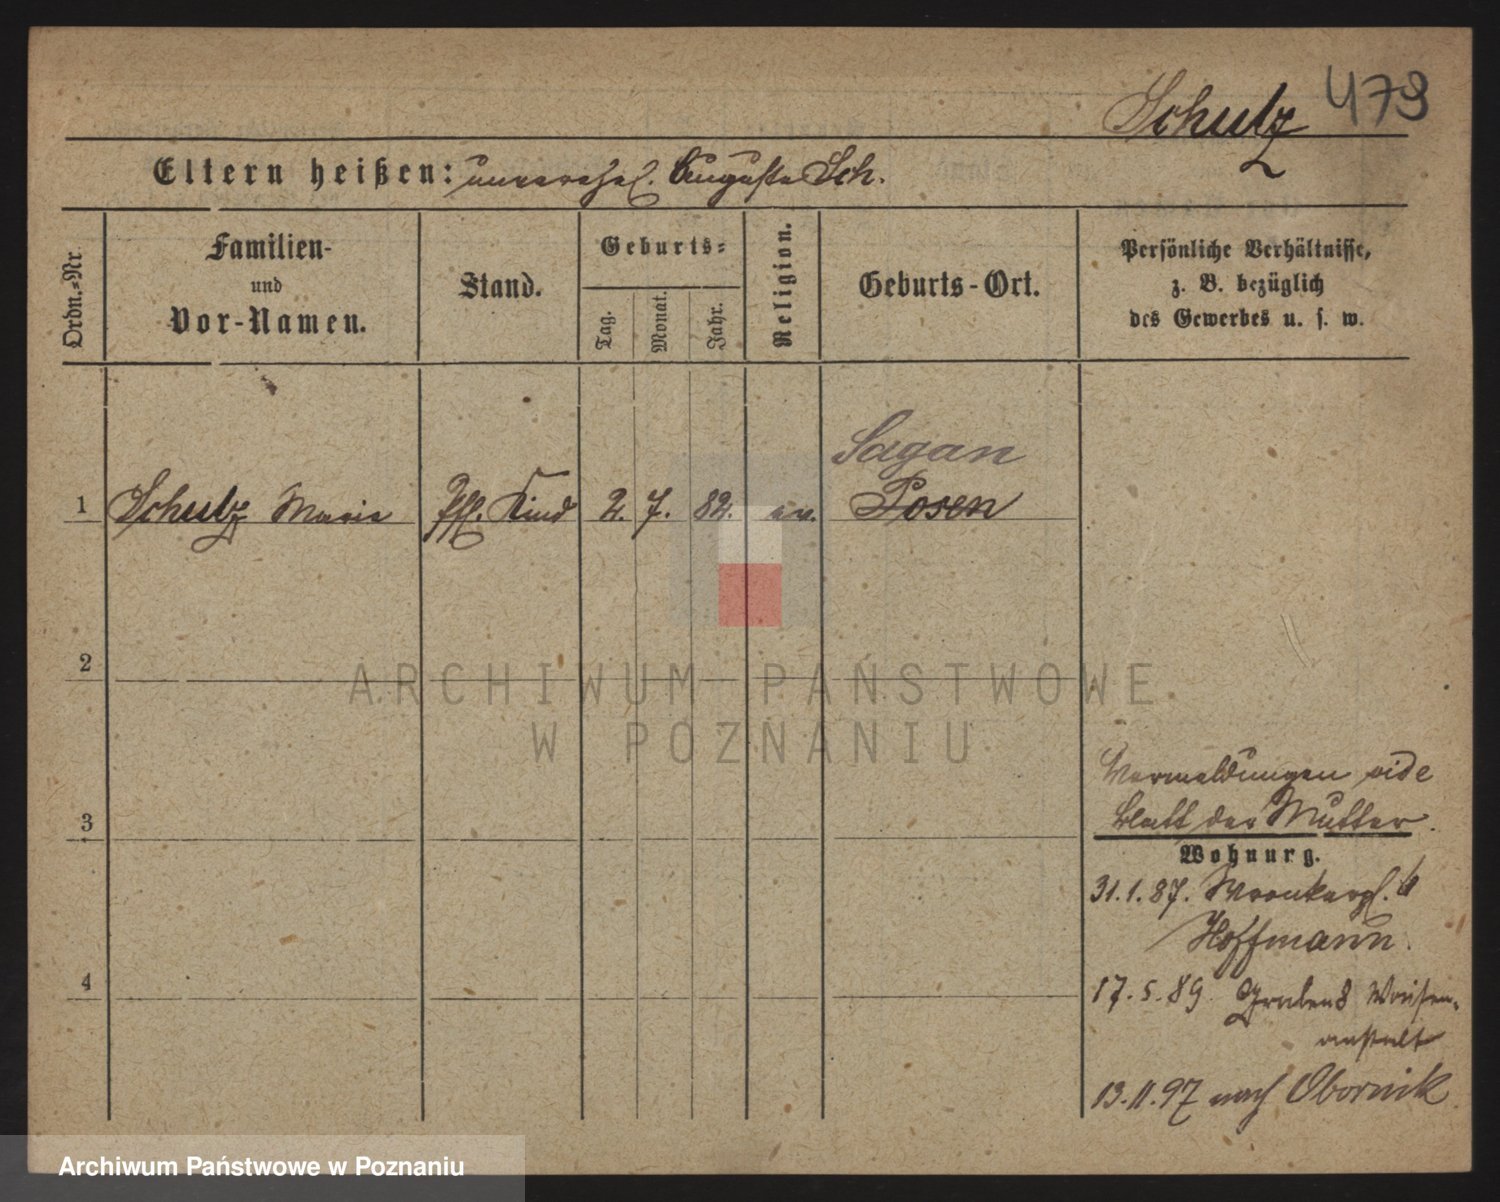 Schulz 473
Eltern heißen: unverehel. Auguste Sch.
Ordn.-Nr.
Familien-
und
Vor-Namen.
Stand.
Geburts-
Tag.
Monat.
Jahr.
Religion.
Geburts-Ort.
Persönliche Verhältnisse,
z. B. bezüglich
des Gewerbes u. s. w.
Sagan
1 Schulz Marie Pfl. Kind 2. 7. 82. ev. Posen
2
ARCHIWUM PAŃSTWOWE
W POZNANIU
3
Vermeldungen vide
Blatt der Mutter.
Wohnung.
31.1.87. Wronkerpl. 6
Hoffmann.
4
17.5.89 Graben 8 Waisen-
anstalt
13.11.97 nach Obornik
Archiwum Państwowe w Poznaniu